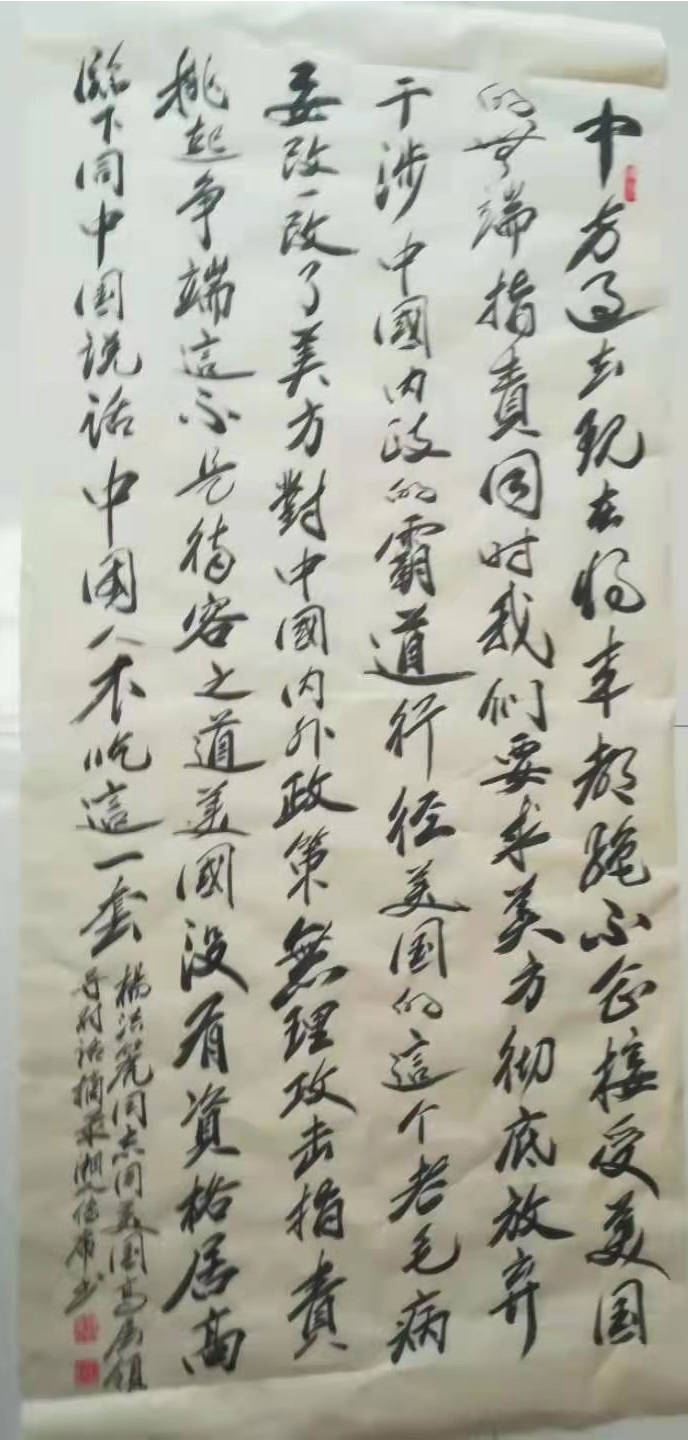 中方过去现在将来都绝不会接受美国
的无端指责同时我们要求美方彻底放弃
干涉中國内政的霸道行径美国的這个老毛病
要改一改了美方對中國内外政策無理攻击指責
挑起争端這不是待客之道美國没有資格居高
临下同中国说话中国人不吃這一套
楊洁篪同志同美国高层領
导对话摘录湘人
书